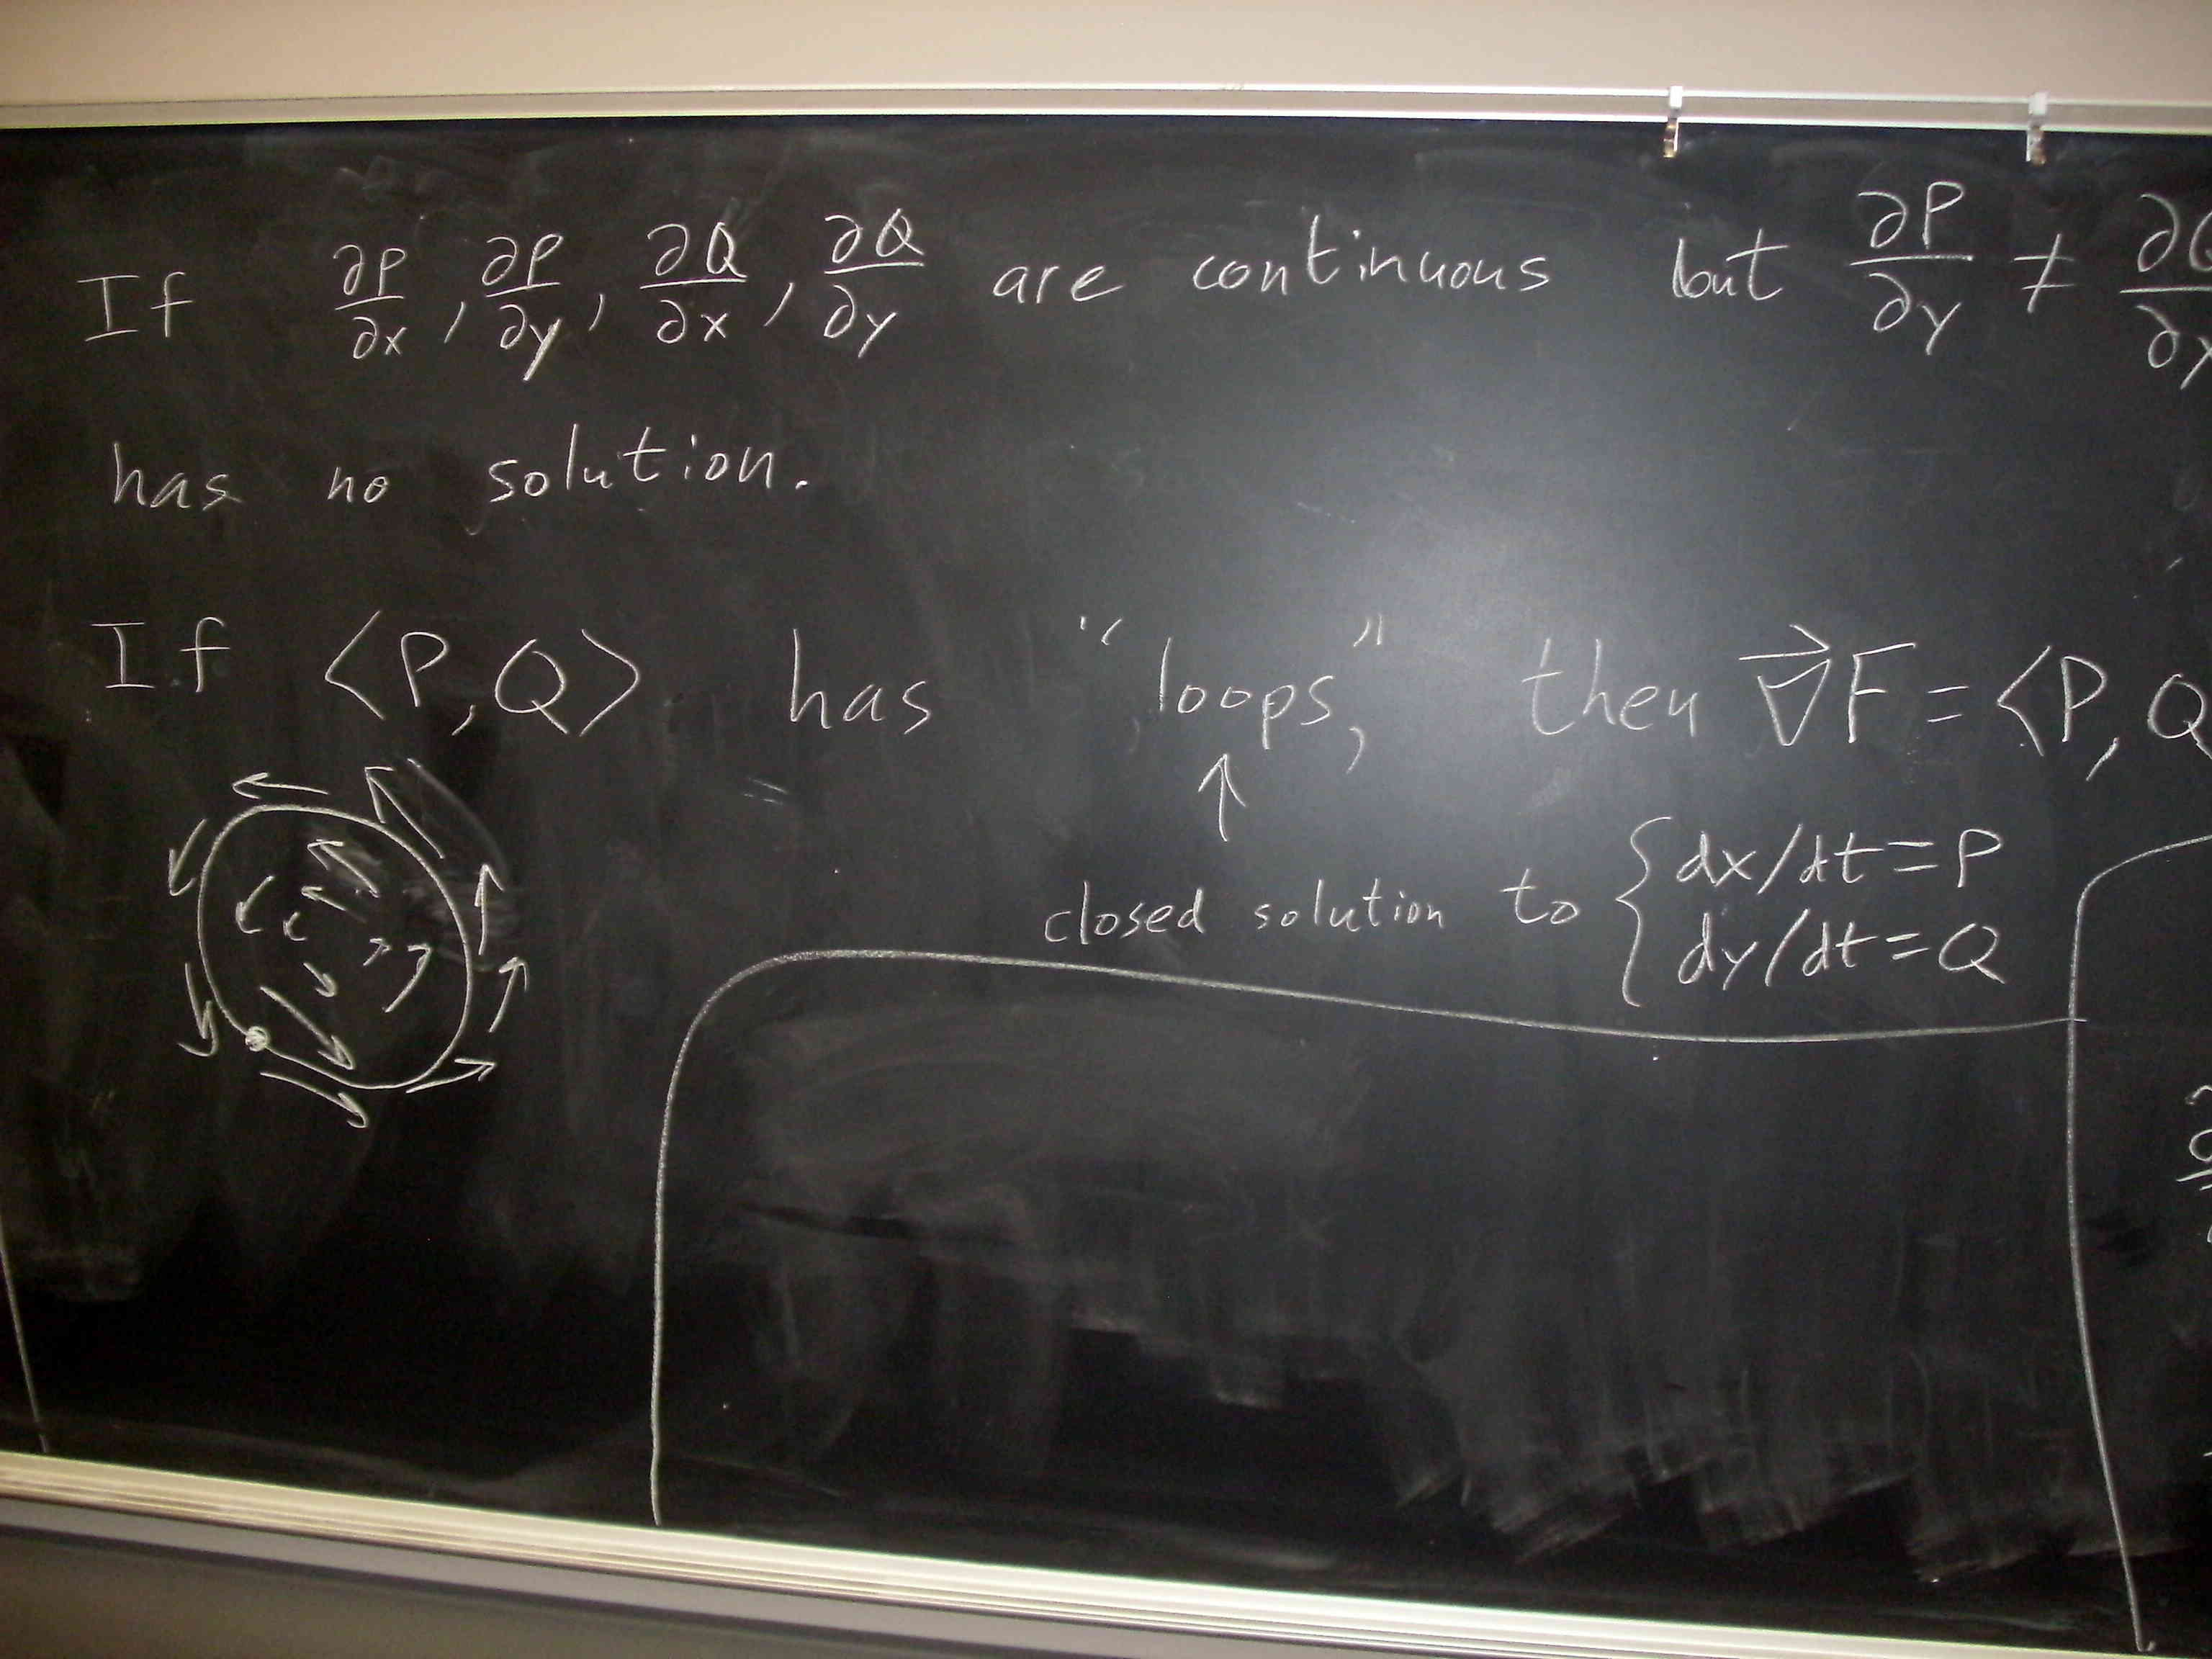 If ∂P/∂x, ∂P/∂y, ∂Q/∂x, ∂Q/∂y are continuous but ∂P/∂y ≠
has no solution.
If ⟨P, Q⟩ has "loops," then ∇⃗F = ⟨P, Q
↑
closed solution to { dx/dt = P
dy/dt = Q